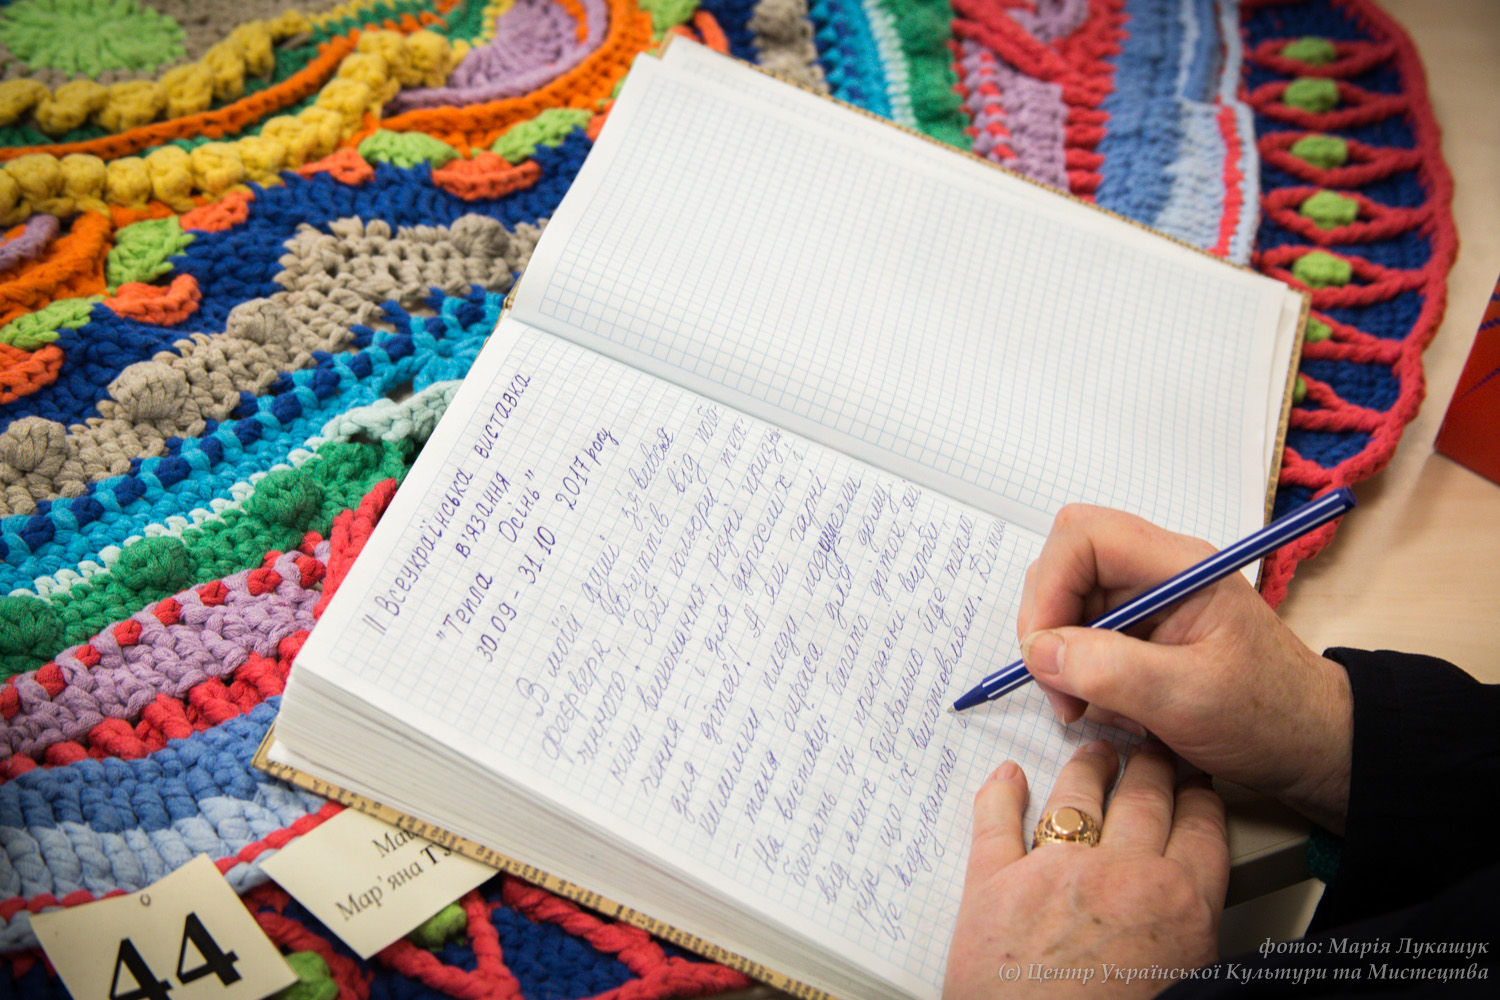 II Всеукраїнська виставка
в'язання
"Тепла Осінь"
30.09 - 31.10 2017 року
В моїй душі з'явився
феєрверк почуттів від поба-
ченого! Які кольори, тех-
ніки виконання, різні призна-
чення - і для дорослих і
для дітей! А які гарні
килимки, пледи, подушечки
- така окраса для дому!
На виставці багато дітей які
бачать ці прекрасні вироби,
від яких буквально йде тепло
рук що їх виготовляли. Дітям
це відчувають
44
Мар'яна Т
фото: Марія Лукашук
(c) Центр Української Культури та Мистецтва